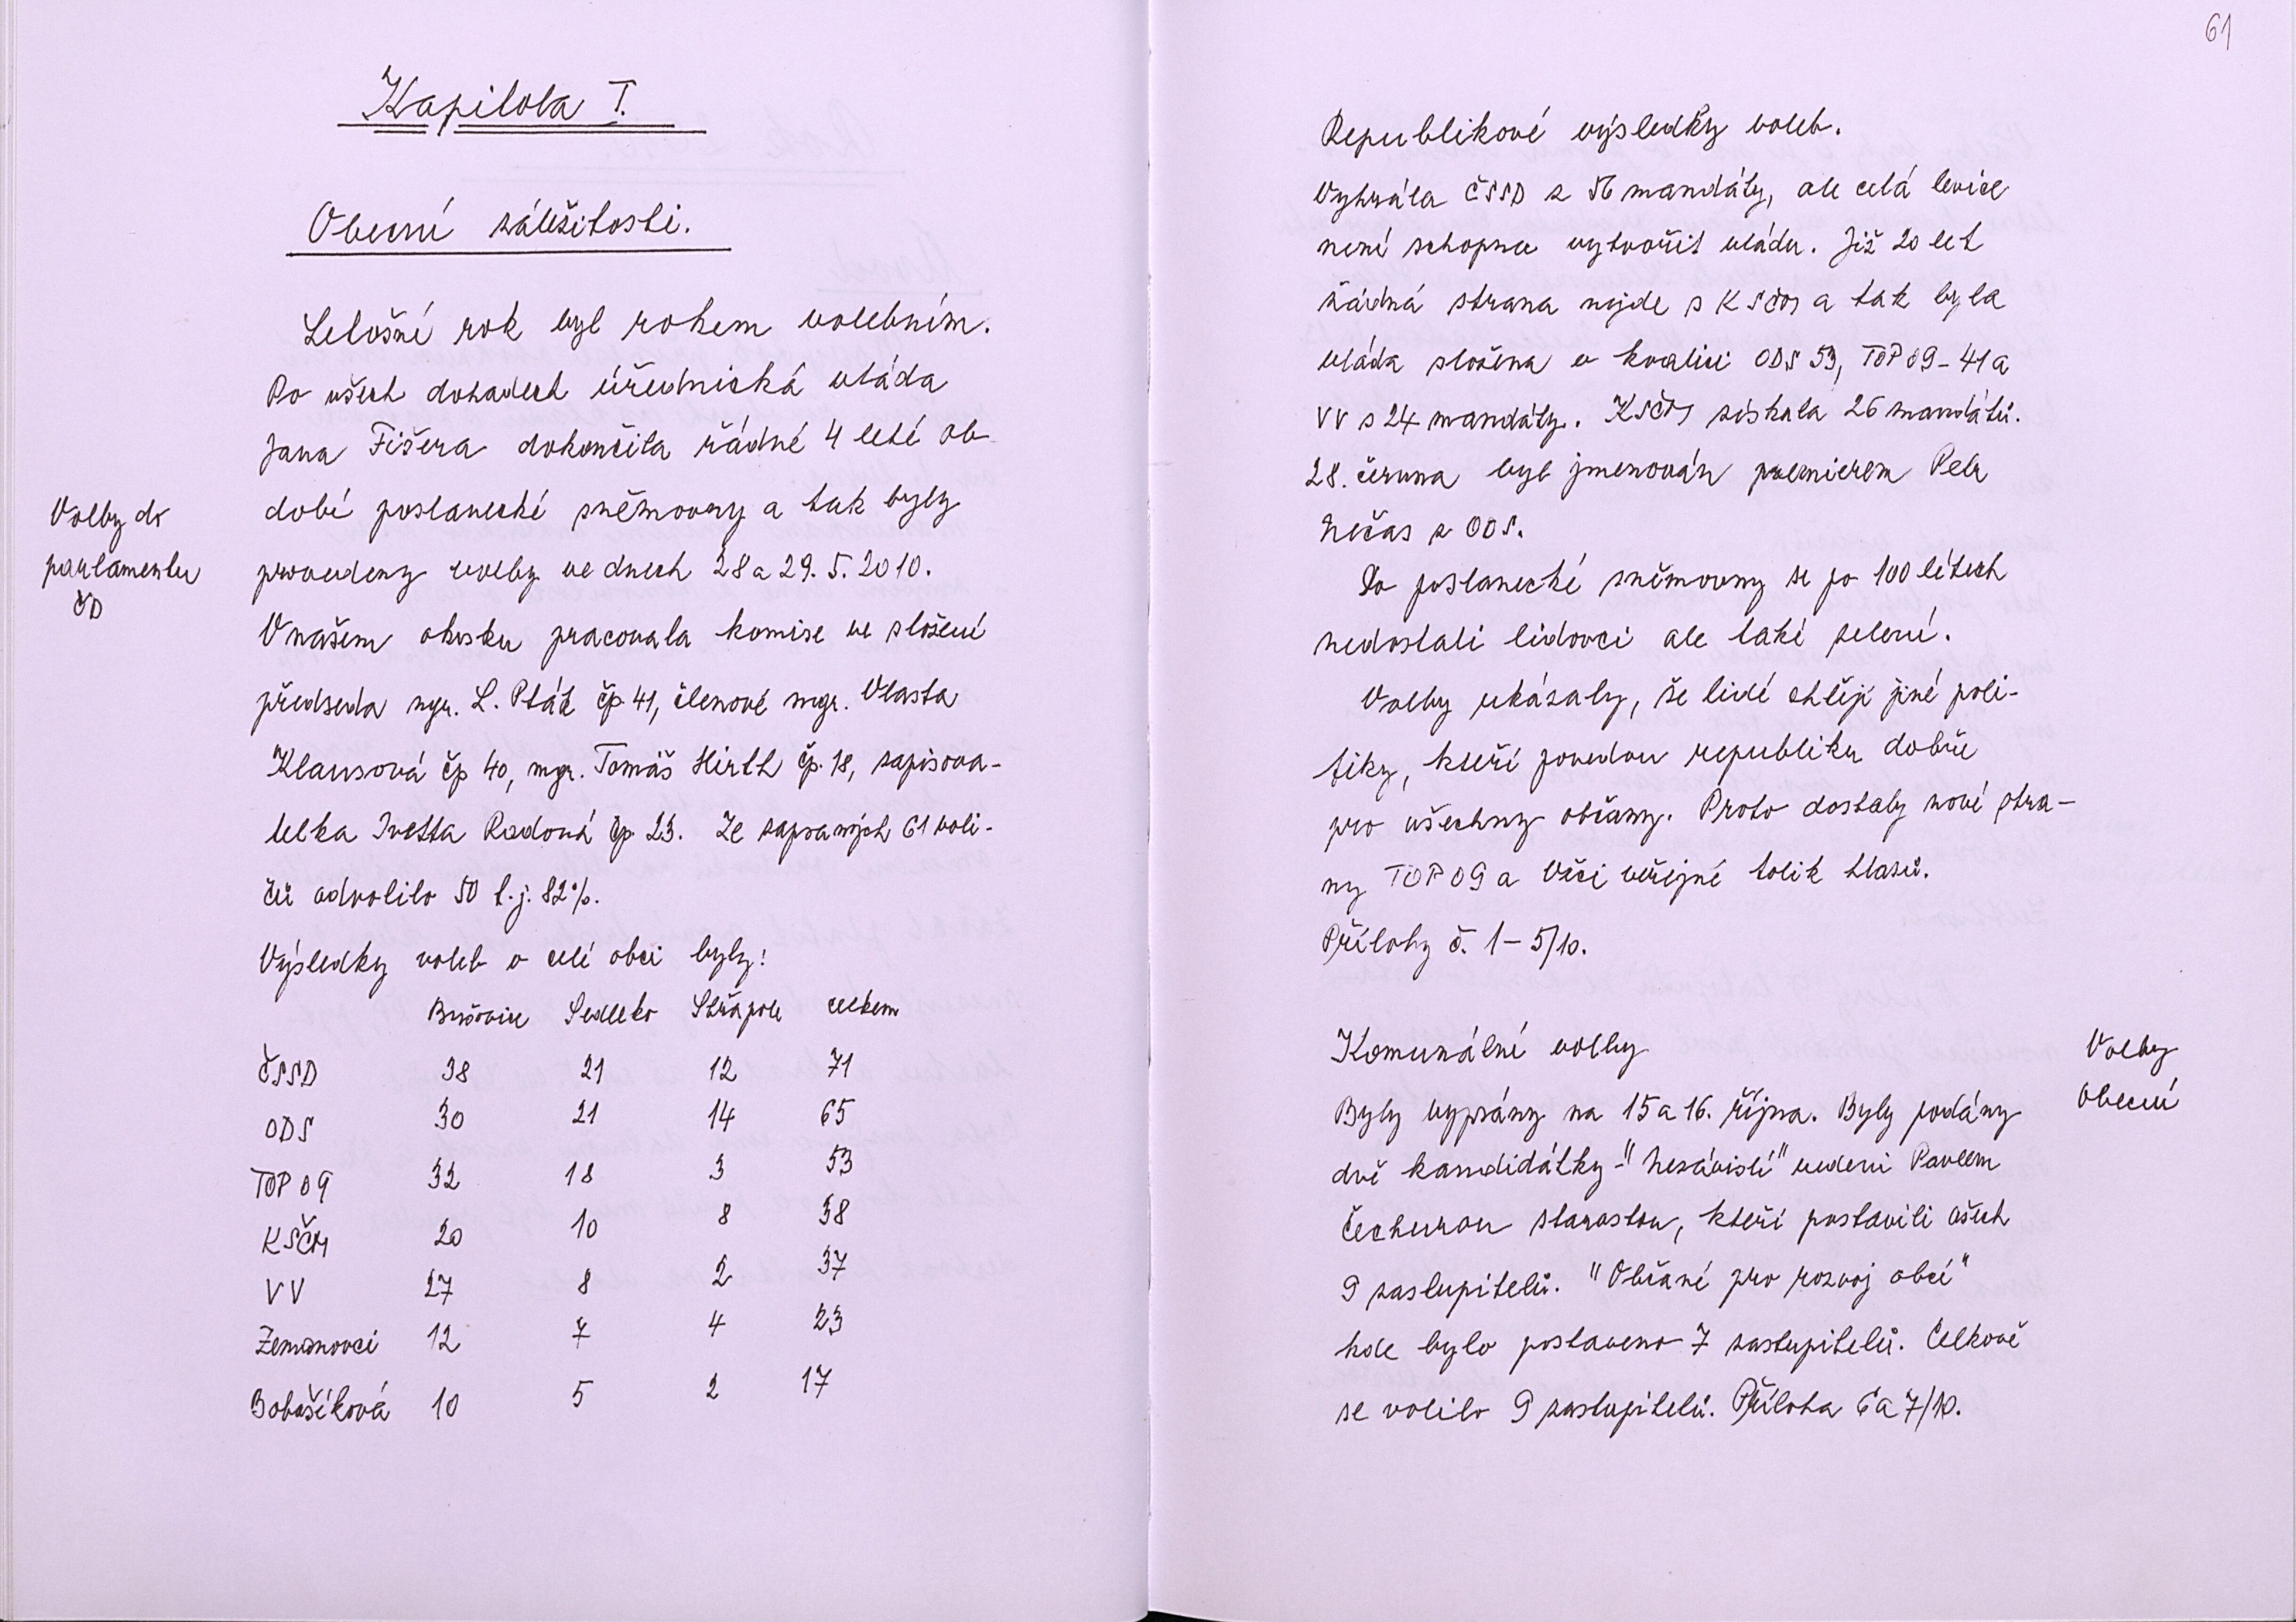 Kapitola I.
Obecní záležitosti.
Letošní rok byl rokem volebním.
Po všech dohadech úřednická vláda
Jana Fišera dokončila řádné 4 leté ob-
dobí poslanecké sněmovny a tak byly
provedeny volby ve dnech 28 a 29. 5. 2010.
V našem okrsku pracovala komise ve složení
předseda mgr. L. Pták čp. 41, členové mgr. Vlasta
Klausová čp 40, mgr. Tomáš Hirth čp. 18, zapisova-
telka Ivetta Radová čp. 23. Ze zapsaných 61 voli-
čů odvolilo 50 t.j. 82%.
Výsledky voleb v celé obci byly:
Bušovice Sedlecko Střapole celkem
ČSSD 38 21 12 71
ODS 30 21 14 65
TOP 09 32 18 3 53
KSČM 20 10 8 38
VV 27 8 2 37
Zemanovci 12 7 4 23
Bobošíková 10 5 2 17
Volby do
parlamentu
ČR
61
Republikové výsledky voleb.
Vyhrála ČSSD s 56 mandáty, ale celá levice
není schopna vytvořit vládu. Již 20 let
žádná strana nejde s KSČM a tak byla
vláda složena v koalici ODS 53, TOP 09 - 41 a
VV s 24 mandáty. KSČM získala 26 mandátů.
28. června byl jmenován premiérem Petr
Nečas z ODS.
Do poslanecké sněmovny se po 100 létech
nedostali lidovci ale také zelení.
Volby ukázaly, že lidé chtějí jiné poli-
tiky, kteří povedou republiku dobře
pro všechny občany. Proto dostaly nové stra-
ny TOP 09 a Věci veřejné tolik hlasů.
Přílohy č. 1 - 5/10.
Komunální volby
Byly vypsány na 15 a 16. října. Byly podány
dvě kandidátky - "Nezávislí" vedeni Pavlem
Čechurou starostou, kteří postavili všech
9 zastupitelů. "Občané pro rozvoj obcí"
kde bylo postaveno 7 zastupitelů. Celkově
se volilo 9 zastupitelů. Příloha 6 a 7/10.
Volby
obecní